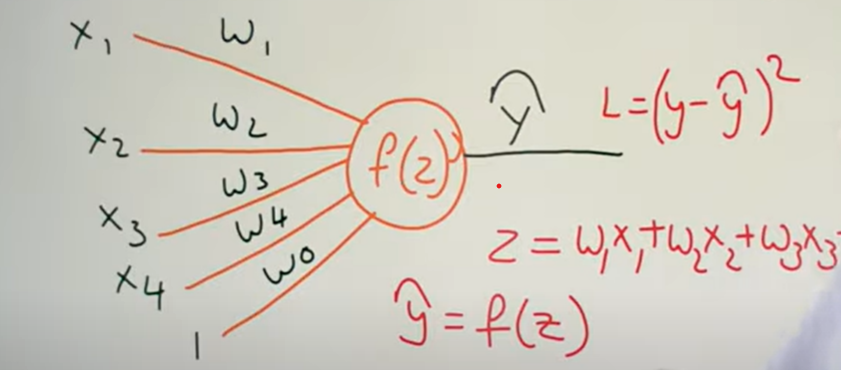 x₁ w₁
x₂ w₂
x₃ w₃
x₄ w₄
1 w₀
f(z)
ŷ
L=(y-ŷ)²
z = w₁x₁+w₂x₂+w₃x₃
ŷ = f(z)